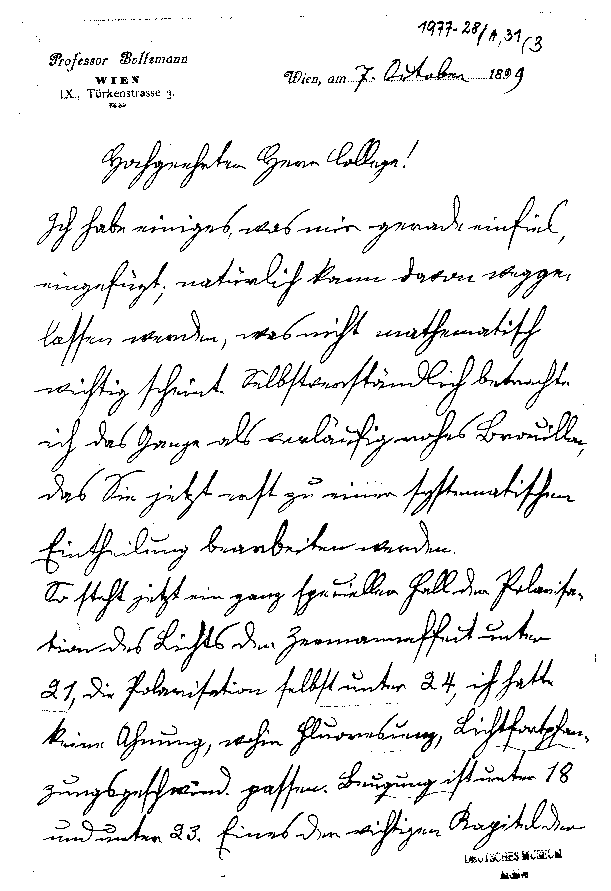 1977-28/A,31(3
Professor Boltzmann
WIEN
IX., Türkenstrasse 3.
Wien, am 7. October 1899
Hochgeehrter Herr College!
Ich habe einiges, was mir gerade einfiel,
eingefügt; natürlich kann davon wegge-
lassen werden, was nicht mathematisch
wichtig scheint. Selbstverständlich betrachte
ich das Ganze als vorläufig rohes Brouillon,
das Sie jetzt erst zu einer systematischen
Eintheilung bearbeiten werden.
So steht jetzt ein ganz specieller Fall der Polarisa-
tion des Lichts der Zeemanneffect unter
21, die Polarisation selbst unter 24, ich hatte
keine Ahnung, wohin Fluorescenz, Lichtfortpflan-
zungsgeschwind. passen. Beugung ist unter 18
und unter 23. Eines der wichtigen Kapitel der
DEUTSCHES MUSEUM